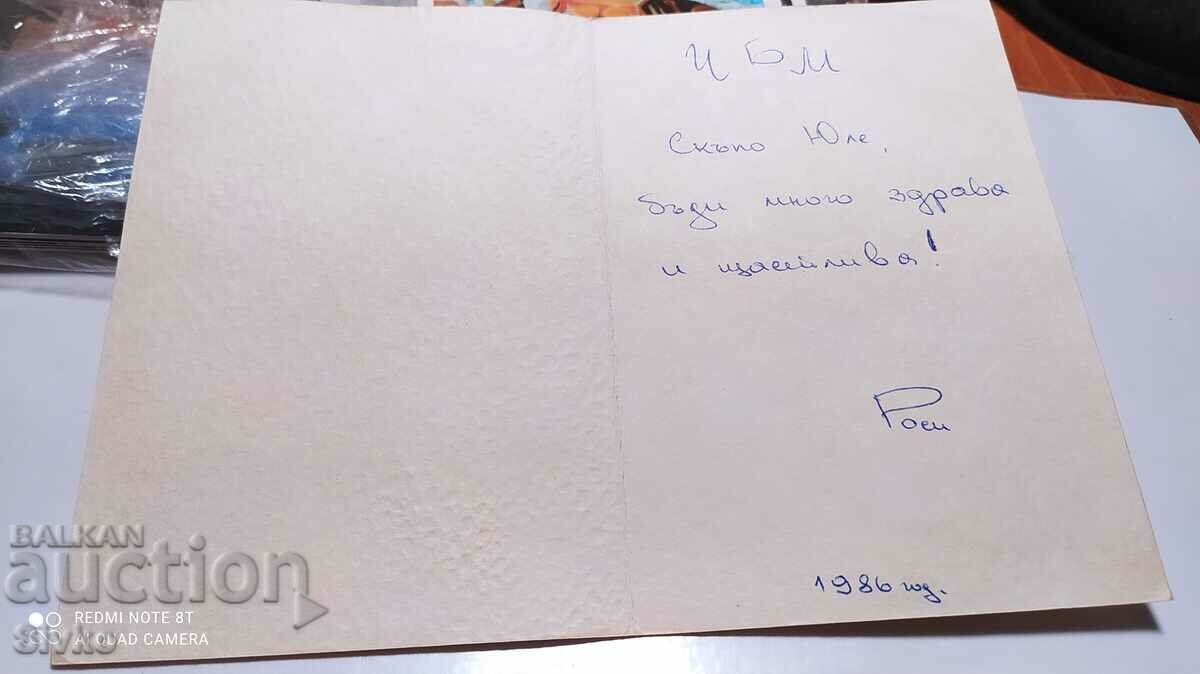 Ч Б М
Скъпо Юле,
бъди много здрава
и щастлива!
Роси
1986 год.
BALKAN
auction
REDMI NOTE 8T
AI QUAD CAMERA
slyko